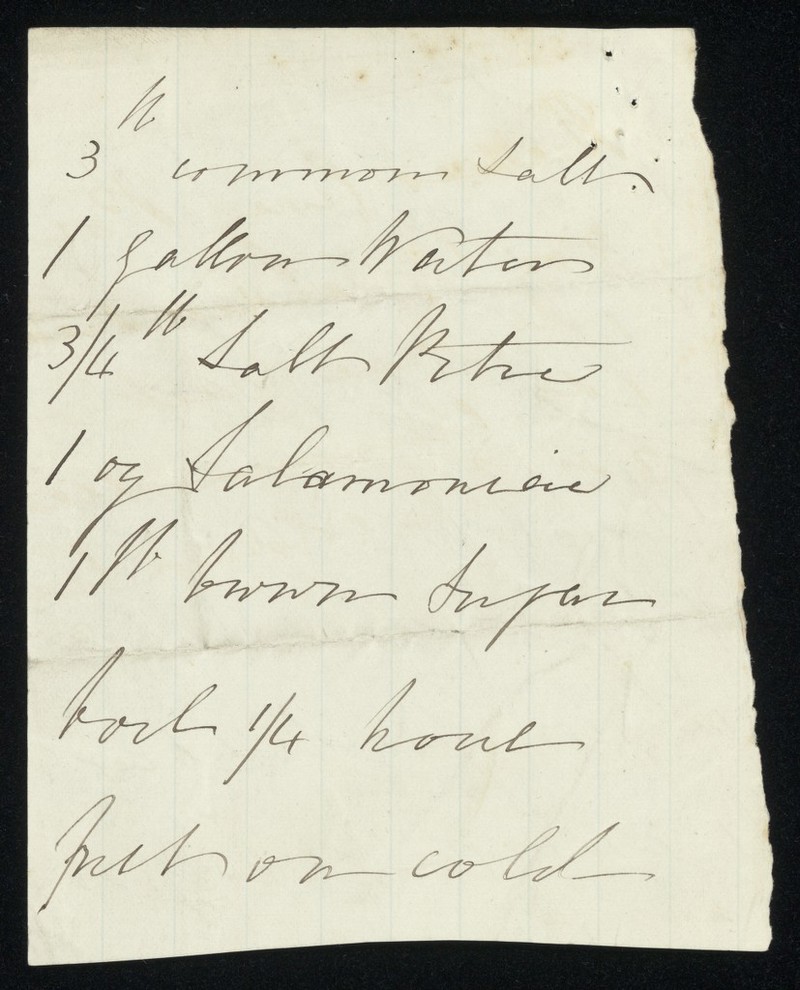 3 lb common Salt.
1 gallon Water
3/4 lb Salt Petre
1 oz Salamoniac
1 lb brown Sugar
boil 1/4 hour
put on cold